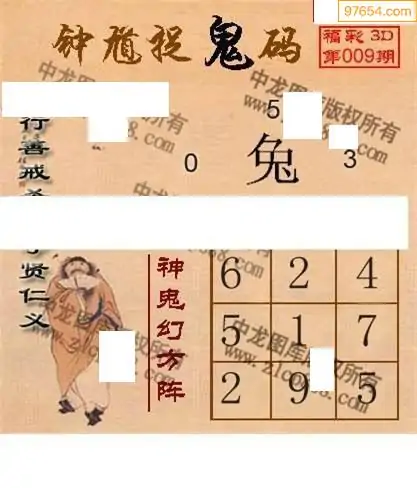 97654.com
钟馗捉鬼码
福彩3D
第009期
中龙图库版权所有
行善戒
贤仁义
5
0
兔
3
神鬼幻方阵
6 2 4
5 1 7
2 9 5